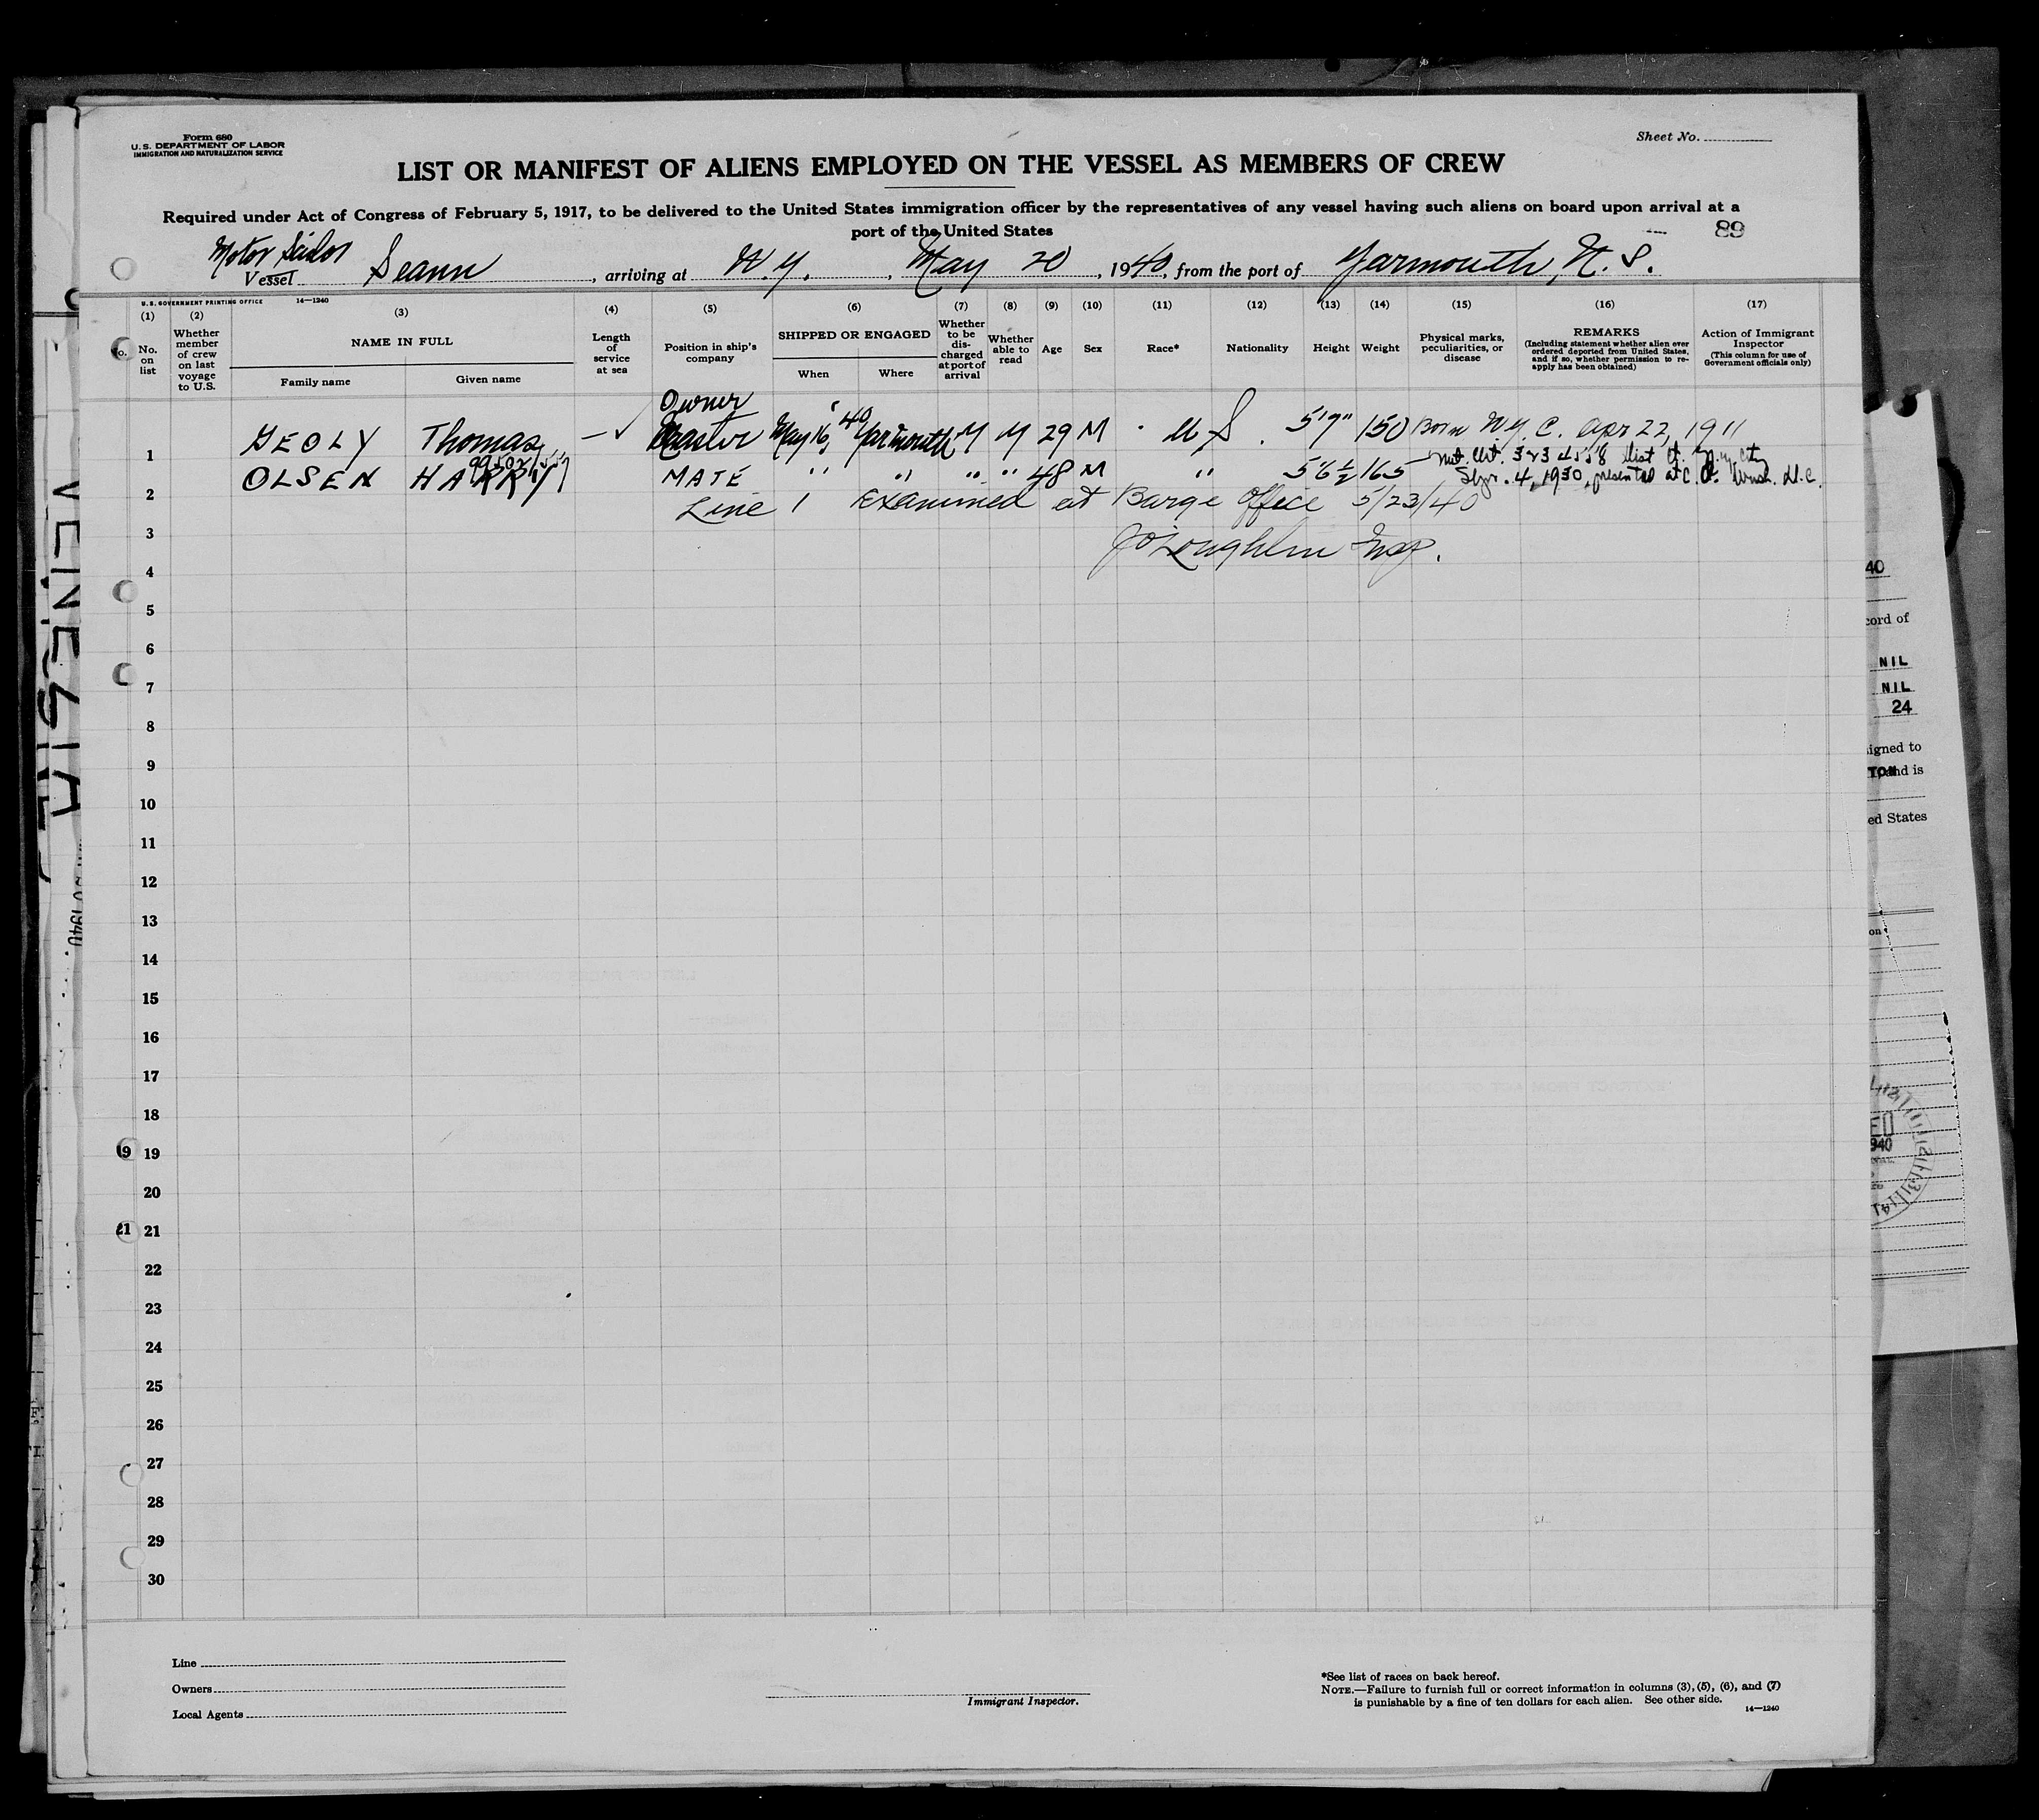 Form 680
U.S. DEPARTMENT OF LABOR
IMMIGRATION AND NATURALIZATION SERVICE
Sheet No.
LIST OR MANIFEST OF ALIENS EMPLOYED ON THE VESSEL AS MEMBERS OF CREW
Required under Act of Congress of February 5, 1917, to be delivered to the United States immigration officer by the representatives of any vessel having such aliens on board upon arrival at a
port of the United States
89
Motor
Vessel Seann, arriving at N.Y., May 20, 1940, from the port of Yarmouth, N.S.
U.S. GOVERNMENT PRINTING OFFICE 14—1240
(1) (2) (3) (4) (5) (6) (7) (8) (9) (10) (11) (12) (13) (14) (15) (16) (17)
No. on list
Whether member of crew on last voyage to U.S.
NAME IN FULL
Family name Given name
Length of service at sea
Position in ship's company
SHIPPED OR ENGAGED
When Where
Whether to be discharged at port of arrival
Whether able to read
Age
Sex
Race*
Nationality
Height
Weight
Physical marks, peculiarities, or disease
REMARKS
(Including statement whether alien ever ordered deported from United States, and if so, whether permission to reapply has been obtained)
Action of Immigrant Inspector
(This column for use of Government officials only)
Owner
1 GEOLY Thomas — ✓ Master May 16, '40 Yarmouth Y Y 29 M U S. 5'7" 150 Born N.Y.C. Apr 22, 1911
2 OLSEN HARRY MATE " " " " 48 M " 5'6½ 165
4, 1930, presented at
Line 1 Examined at Barge Office 5/23/40
3
J O'Loughlin Insp.
4
5
6
7
8
9
10
11
12
13
14
15
16
17
18
19
20
21
22
23
24
25
26
27
28
29
30
Line
Owners
Local Agents
Immigrant Inspector.
*See list of races on back hereof.
NOTE.—Failure to furnish full or correct information in columns (3), (5), (6), and (7)
is punishable by a fine of ten dollars for each alien. See other side.
14—1240
40
cord of
NIL
NIL
24
signed to
TON and is
ed States